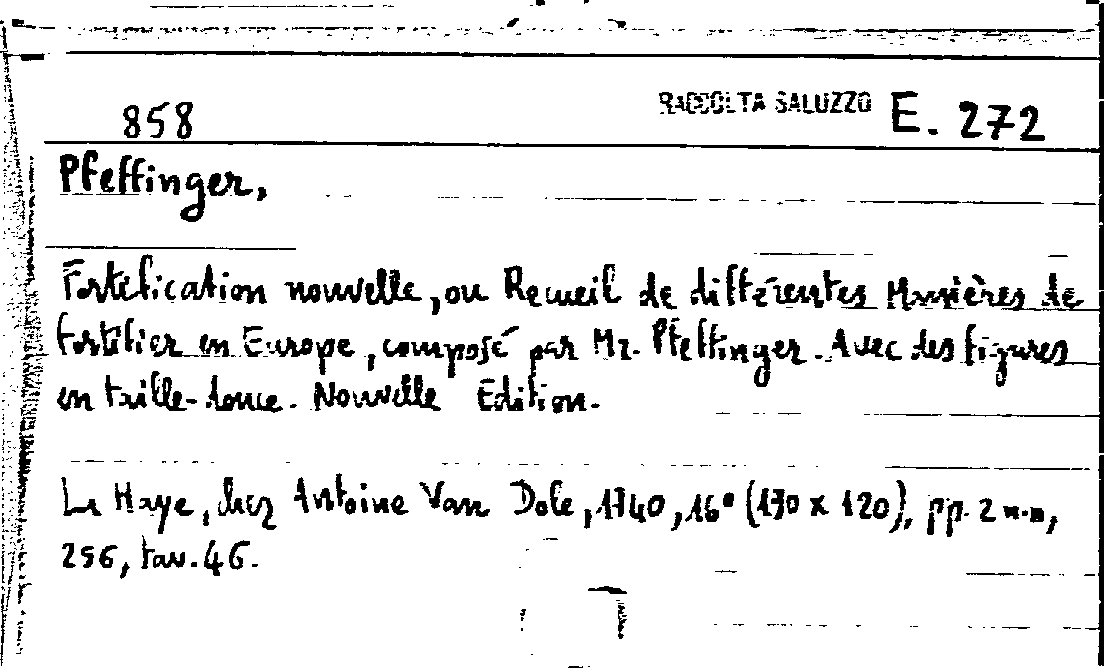 858 RACCOLTA SALUZZO E. 272
Pfeffinger,
Fortification nouvelle, ou Recueil de différentes Manières de
fortifier en Europe, composé par Mr. Pfeffinger. Avec des figures
en taille-douce. Nouvelle Edition.
La Haye, chez Antoine Van Dole, 1740, 16° (190 x 120), pp. 2 n.n,
256, tav. 46.